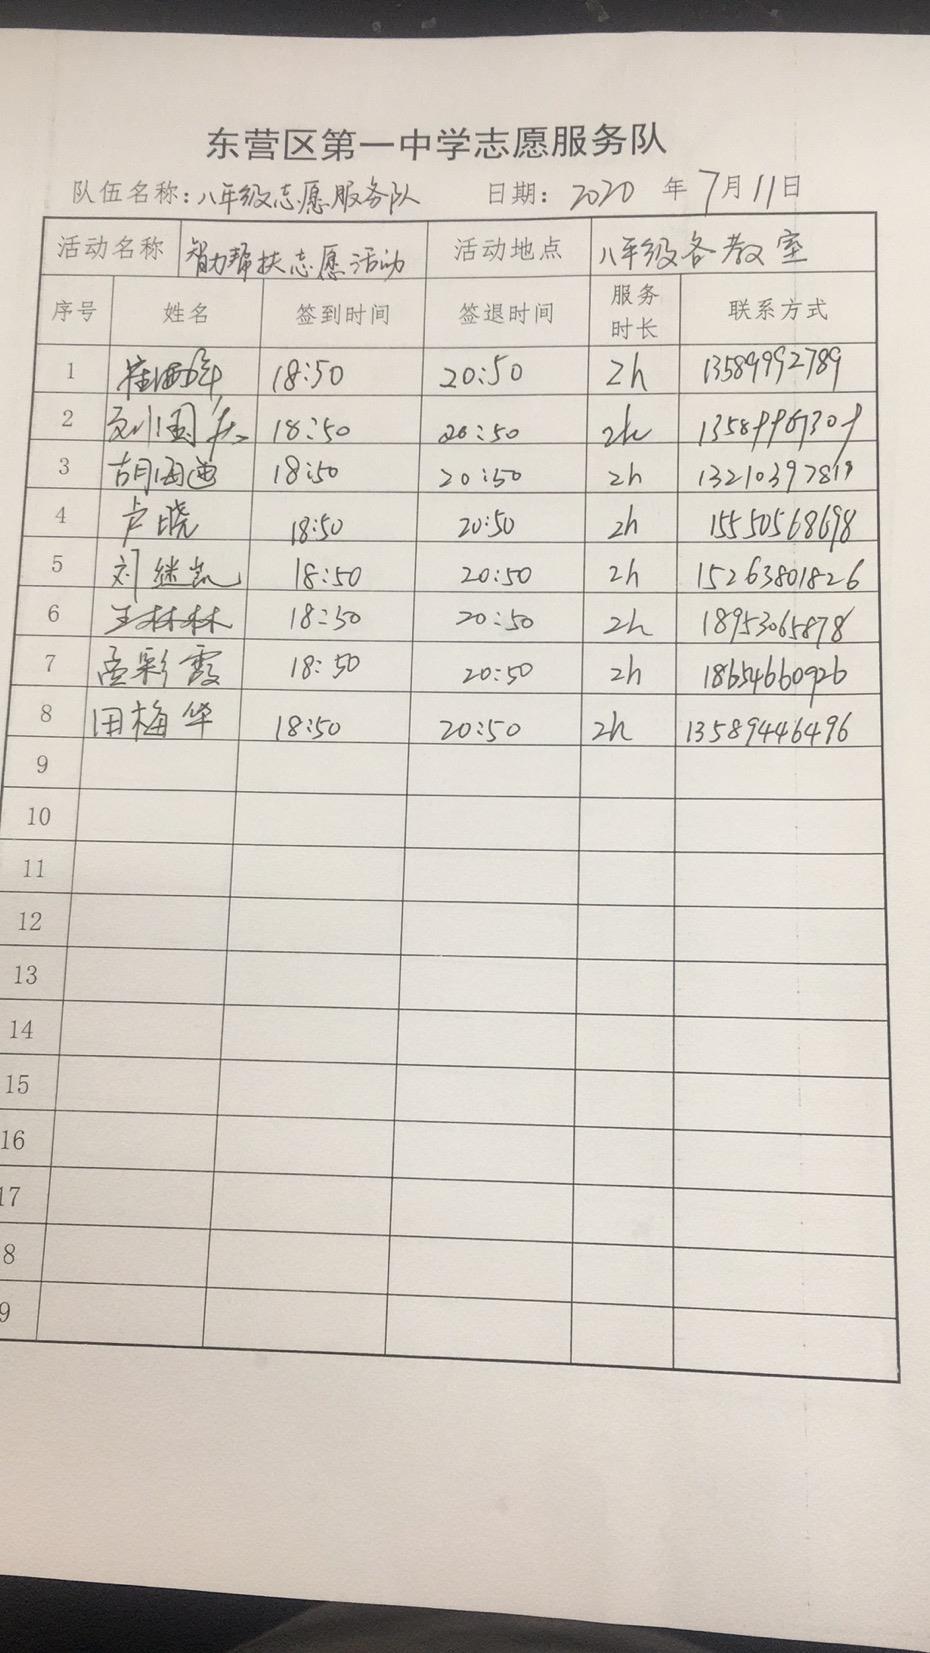 东营区第一中学志愿服务队
队伍名称：八年级志愿服务队 日期：2020 年 7月11日
活动名称 智力帮扶志愿活动 活动地点 八年级各教室
序号 姓名 签到时间 签退时间 服务时长 联系方式
1 18:50 20:50 2h 13589992789
2 18:50 20:50 2h
3 胡海迪 18:50 20:50 2h
4 卢晓 18:50 20:50 2h 15550568698
5 刘继凯 18:50 20:50 2h 15263801826
6 王林林 18:50 20:50 2h 18953065878
7 孟彩霞 18:50 20:50 2h 18654660926
8 田梅华 18:50 20:50 2h 13589446496
9
10
11
12
13
14
15
16
17
8
9